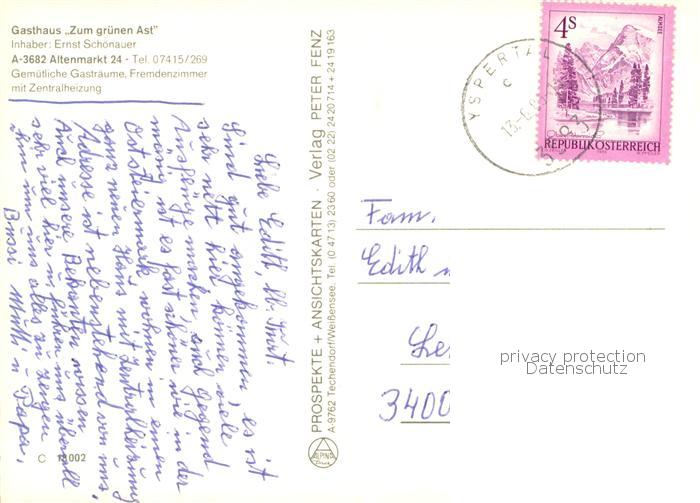 Gasthaus „Zum grünen Ast"
Inhaber: Ernst Schönauer
A-3682 Altenmarkt 24 - Tel. 07415/269
Gemütliche Gasträume, Fremdenzimmer
mit Zentralheizung
Liebe Edith, lb. Kurt.
Sind gut angekommen, es ist
sehr nett hier können viele
Ausflüge machen, und Gegend
mäßig ist es fast schöner wie in der
Oststeiermark, wohnen in einen
ganz neuen Haus mit Zentralheizung
Adresse ist nebenstehend von uns,
Auch unsere Bekannten wissen
sehr viel hier u. führen uns überall
hin um uns alles zu zeigen
Bussi Mutti u Papa,
C 13002
PROSPEKTE + ANSICHTSKARTEN · Verlag PETER FENZ
A-9762 Techendorf/Weißensee. Tel. (0 4713) 2360 oder (02 22) 24 20 714 + 24 19 163
ALPINA
Druck
YSPERTAL
C
13.-6.8
4S
ALMSEE
REPUBLIK ÖSTERREICH
Fam.
Edith
3400
privacy protection
Datenschutz